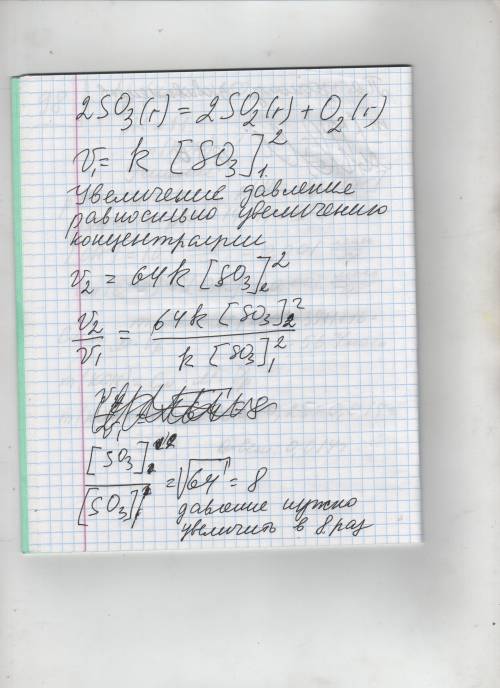 2SO₃(г) = 2SO₂(г) + O₂(г)
v₁ = k [SO₃]₁²
Увеличение давление
равносильно увеличению
концентрации
v₂ = 64k [SO₃]₂²
v₂/v₁ = 64k [SO₃]₂² / k [SO₃]₁²
[SO₃]₂ / [SO₃]₁ = √64 = 8
давление нужно
увеличить в 8 раз